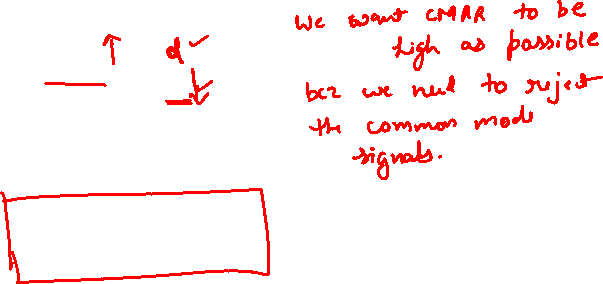 We want CMRR to be
high as possible
bcz we need to reject
the common mode
signals.
d